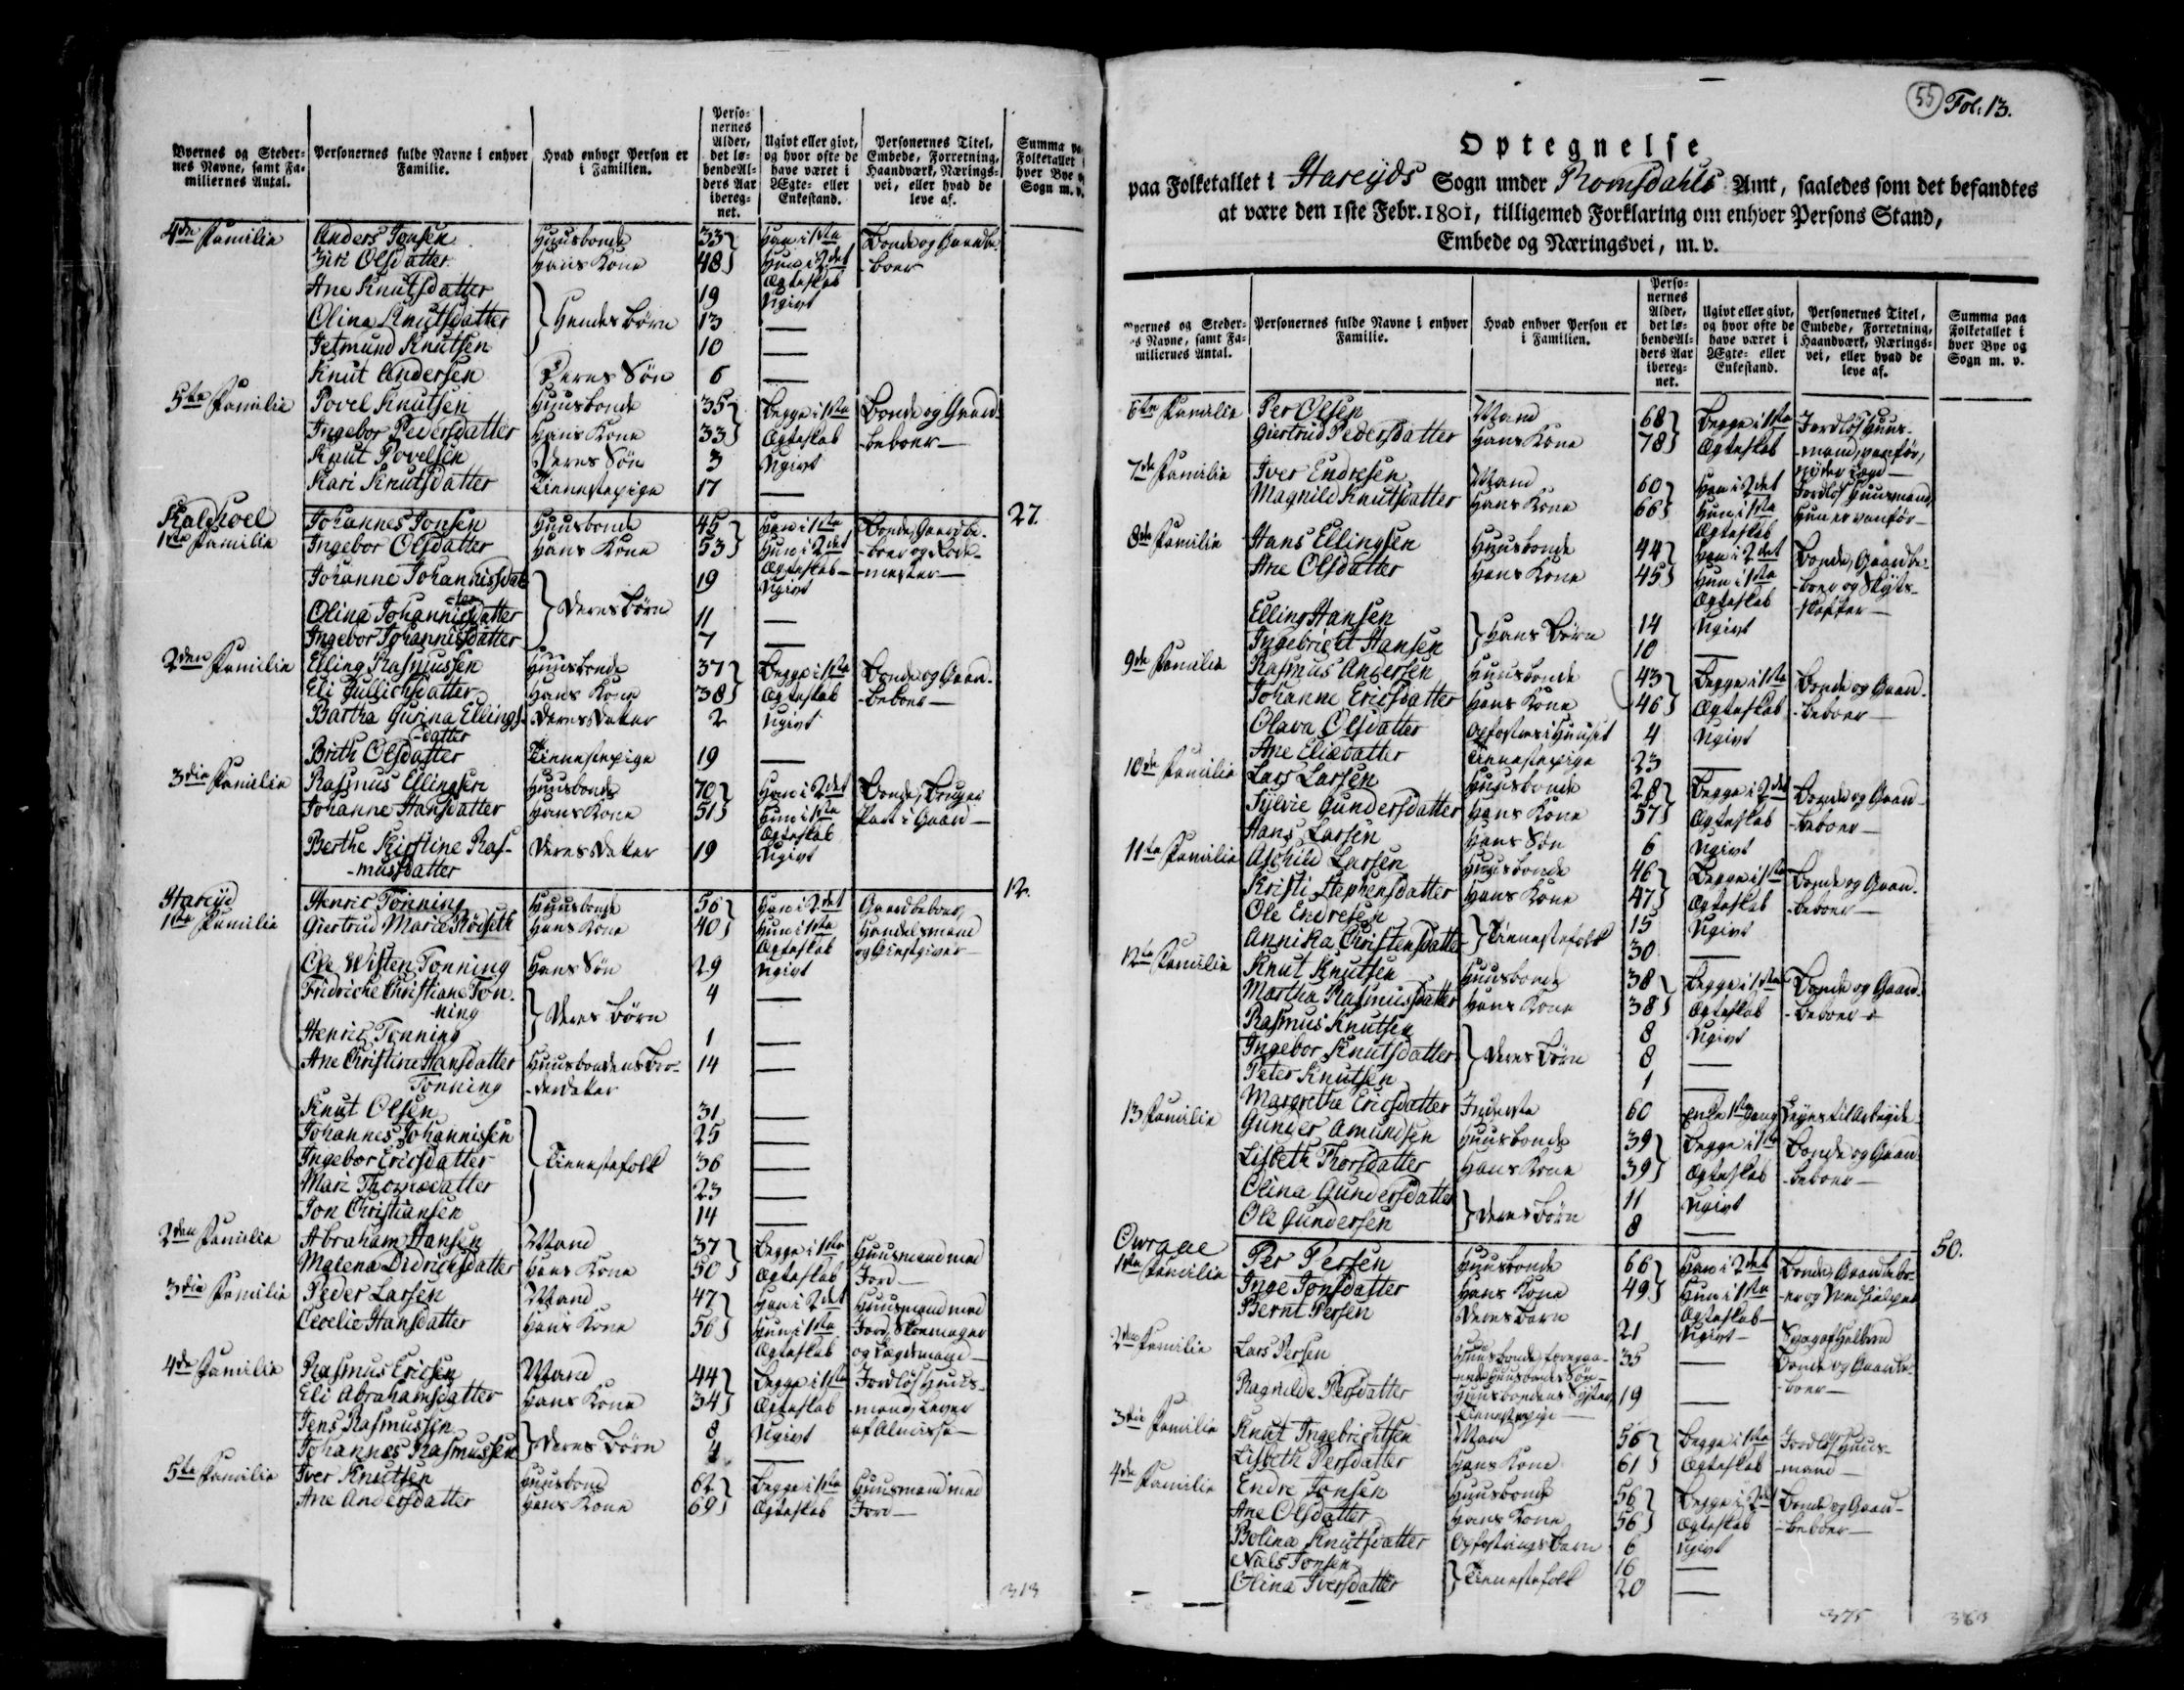 Byernes og Steder- Personernes fulde Navne i enhver Hvad enhver Person er Perso-nernes Alder, det lø-bende Al-ders Aar ibereg-net. Ugivt eller givt, og hvor ofte de have været i Ægte- eller Enkestand. Personernes Titel, Embede, Forretning, Haandværk, Nærings-vei, eller hvad de leve af. Summa
nes Navne, samt Fa- Familie. i Familien. Folketallet
miliernes Antal. hver Bye
Sogn m. v.
4de Familie Anders Jonsen Huusbonde 33 Han i 1ste Bonde og Gaardbe-
Ziri Olsdatter Hans Kone 48 Hun i 2det -boer
Ægteskab
Ane Knutsdatter Hendes Børn 19 Ugivt
Olina Knutsdatter 13 —
Jetmund Knutsen 10 —
Knut Andersen Deres Søn 6 —
5te Familie Povel Knutsen Huusbonde 35 Begge i 1ste Bonde og Gaard-
Ingebor Pedersdatter Hans Kone 33 Ægteskab -beboer —
Knut Povelsen Deres Søn 3 Ugivt
Kari Knutsdatter Tienestepige 17 —
27.
Kaldhoel Johannes Jonsen Huusbonde 45 Han i 1ste Bonde, Gaardbe-
1ste Familie Ingebor Olsdatter Hans Kone 53 Hun i 2det -boer og Rode-
Ægteskab — -mester —
Johanne Johannisdat- Deres Børn 19 Ugivt
-ter
Olina Johannisdatter 11 —
Ingebor Johannisdatter 7 —
2den Familie Elling Rasmussen Huusbonde 37 Begge i 1ste Bonde og Gaard-
Eli Gullichsdatter Hans Kone 38 Ægteskab -beboer —
Bartha Gurina Ellings- Deres Datter 2 Ugivt
-datter
Brith Olsdatter Tienestepige 19 —
3die Familie Rasmus Ellingsen Huusbonde 70 Han i 2det Bonde, Bruger
Johanne Hansdatter Hans Kone 51 Hun i 1ste Part i Gaard —
Ægteskab
Berthe Kirstine Ras- Deres Datter 19 Ugivt
-musdatter
12.
Hareid Henric Tonning Huusbonde 56 Han i 2det Gaardbeboer,
1ste Familie Giertrud Marie Rørseth Hans Kone 40 Hun i 1ste Handelsmand
Ægteskab og Giestgiver —
Ole Wisten Tonning Hans Søn 29 Ugivt
Fridriche Christiane Ton- Deres Børn 4 —
-ning
Henric Tonning 1 —
Ane Christine Hansdatter Huusbondens Bro- 14 —
Tonning -derdatter
Knut Olsen Tienestefolk 31 —
Johannes Johannissen 25 —
Ingebor Ericsdatter 36 —
Mari Thomædatter 23 —
Jon Christiansen 14 —
2den Familie Abraham Hansen Mand 37 Begge i 1ste Huusmand med
Malena Didrichsdatter Hans Kone 50 Ægteskab Jord —
3die Familie Peder Larsen Mand 47 Han i 2det Huusmand med
Cecelie Hansdatter Hans Kone 56 Hun i 1ste Jord, Skomager
Ægteskab og Lægdsmand —
4de Familie Rasmus Ericsen Mand 44 Begge i 1ste Jordløs Huus-
Eli Abrahamsdatter Hans Kone 34 Ægteskab -mand, Lever
Jens Rasmussen Deres Børn 8 Ugivt af Almisse —
Johannes Rasmussen 4 —
5te Familie Iver Knutsen Huusbond 62 Begge i 1ste Huusmand med
Ane Andersdatter Hans Kone 69 Ægteskab Jord —
313
55 Fol. 13.
Optegnelse
paa Folketallet i Hareyds Sogn under Romsdahls Amt, saaledes som det befandtes
at være den 1ste Febr. 1801, tilligemed Forklaring om enhver Persons Stand,
Embede og Næringsvei, m. v.
Byernes og Steder- Personernes fulde Navne i enhver Hvad enhver Person er Perso-nernes Alder, det lø-bende Al-ders Aar ibereg-net. Ugivt eller givt, og hvor ofte de have været i Ægte- eller Enkestand. Personernes Titel, Embede, Forretning, Haandværk, Nærings-vei, eller hvad de leve af. Summa paa
nes Navne, samt Fa- Familie. i Familien. Folketallet i
miliernes Antal. hver Bye og
Sogn m. v.
6te Familie Per Olsen Mand 68 Begge i 1ste Jordløs Huus-
Giertrud Pedersdatter Hans Kone 78 Ægteskab -mand, vanfør,
nyder Lægd —
7de Familie Iver Endresen Mand 60 Han i 2det Jordløs Huusmand,
Magnild Knutsdatter Hans Kone 66 Hun i 1ste Hun er vanfør —
Ægteskab
8de Familie Hans Ellingsen Huusbonde 44 Han i 2det Bonde, Gaardbe-
Ane Olsdatter Hans Kone 45 Hun i 1ste -boer og Skyds-
Ægteskab -skaffer —
Elling Hansen Hans Børn 14 Ugivt
Ingebricht Hansen 10 —
9de Familie Rasmus Andersen Huusbonde 43 Begge i 1ste Bonde og Gaard-
Johanne Ericsdatter Hans Kone 46 Ægteskab -beboer —
Olava Olsdatter Opfostres i Huuset 4 Ugivt
Ane Eliædatter Tienestepige 23 —
10de Familie Lars Larsen Huusbonde 28 Begge i 2det Bonde og Gaard-
Sylvie Gundersdatter Hans Kone 57 Ægteskab -beboer —
Hans Larsen Hans Søn 6 Ugivt
11te Familie Aschild Larsen Huusbonde 46 Begge i 1ste Bonde og Gaard-
Kristi Stephensdatter Hans Kone 47 Ægteskab -beboer —
Ole Endresen Tienestefolk 15 Ugivt
Annika Christensdatter 30 —
12te Familie Knut Knutsen Huusbonde 38 Begge i 1ste Bonde og Gaard-
Martha Rasmusdatter Hans Kone 38 Ægteskab -beboer —
Rasmus Knutsen Deres Børn 8 Ugivt
Ingebor Knutsdatter 8 —
Peter Knutsen 1 —
Margrethe Ericsdatter Inderste 60 Enke 1ste Gang
13 Familie Gunder Amundsen Huusbonde 39 Begge i 1ste Bonde og Gaard-
Lisbeth Thorsdatter Hans Kone 39 Ægteskab -beboer —
Olina Gundersdatter Deres Børn 11 Ugivt
Ole Gundersen 8 —
50.
Owraae Per Persen Huusbonde 66 Han i 2det Bonde, Gaardbebo-
1ste Familie Inge Jonsdatter Hans Kone 49 Hun i 1ste -er og Medhielper
Bernt Persen Deres Barn 21 Ægteskab —
Ugivt —
2den Familie Lars Persen Huusbonde, foregaa- 35 — Bonde og Gaardbe-
-ende Huusbondes Søn — -boer —
Ragnilde Persdatter Huusbondens Syster, 19 —
Tienestepige —
3die Familie Knut Ingebrichtsen Mand 56 Begge i 1ste Jordløs Huus-
Lisbeth Persdatter Hans Kone 61 Ægteskab -mand —
4de Familie Endre Jonsen Huusbonde 56 Begge i 2det Bonde og Gaard-
Ane Olsdatter Hans Kone 56 Ægteskab -beboer —
Bolina Knutsdatter Opfostrings Barn 6 Ugivt
Nils Jonsen Tienestefolk 16 —
Olina Iversdatter 20 —
375 363